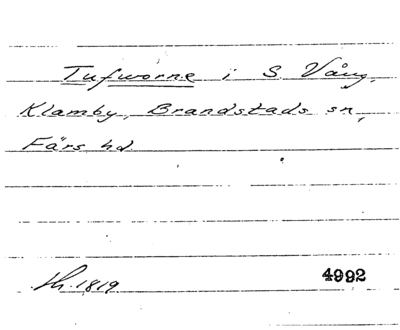 Tufworne i S. Vång,
Klamby, Brandstads sn,
Färs hd
Sh. 1819 4992